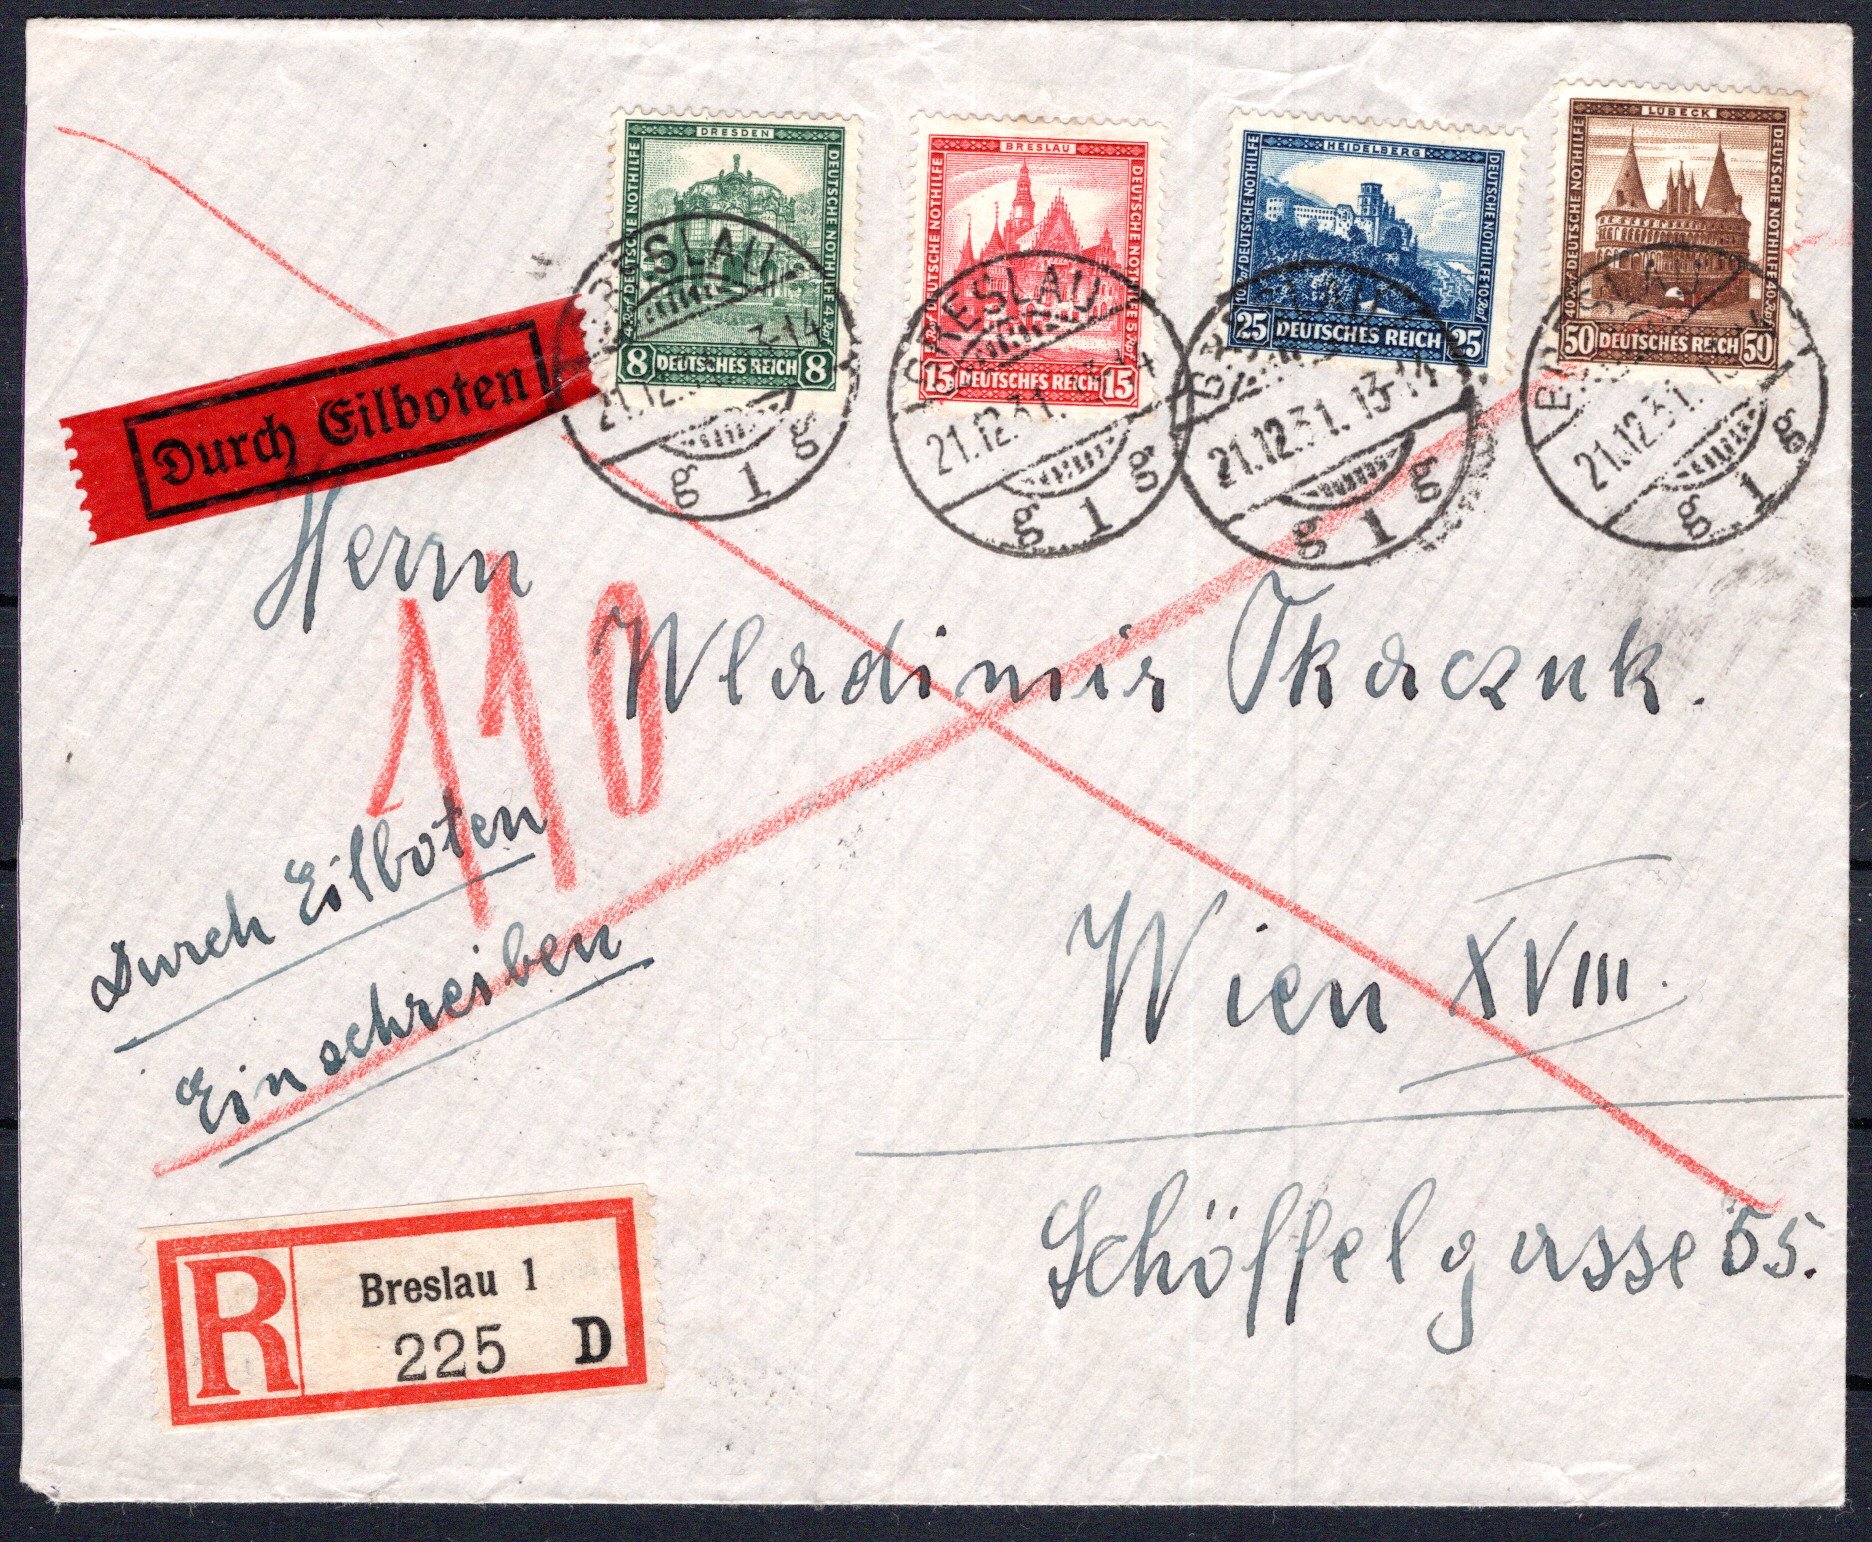 DRESDEN
DEUTSCHE NOTHILFE
4 Rpf DEUTSCHE NOTHILFE 4 Rpf
8 DEUTSCHES REICH 8
BRESLAU
5 Rpf DEUTSCHE NOTHILFE
DEUTSCHE NOTHILFE 5 Rpf
15 DEUTSCHES REICH 15
HEIDELBERG
10 Rpf DEUTSCHE NOTHILFE
DEUTSCHE NOTHILFE 10 Rpf
25 DEUTSCHES REICH 25
LÜBECK
40 Rpf DEUTSCHE NOTHILFE
DEUTSCHE NOTHILFE 40 Rpf
50 DEUTSCHES REICH 50
BRESLAU
21.12.31. 13-14
g 1 g
BRESLAU
21.12.31. 13-14
g 1 g
BRESLAU
21.12.31. 13-14
g 1 g
BRESLAU
21.12.31. 13-14
g 1 g
Durch Eilboten
Herrn
110
Wladimir Okaczuk.
Durch Eilboten
Einschreiben
Wien XVIII.
Schöffelgasse 55.
R
Breslau 1
225 D